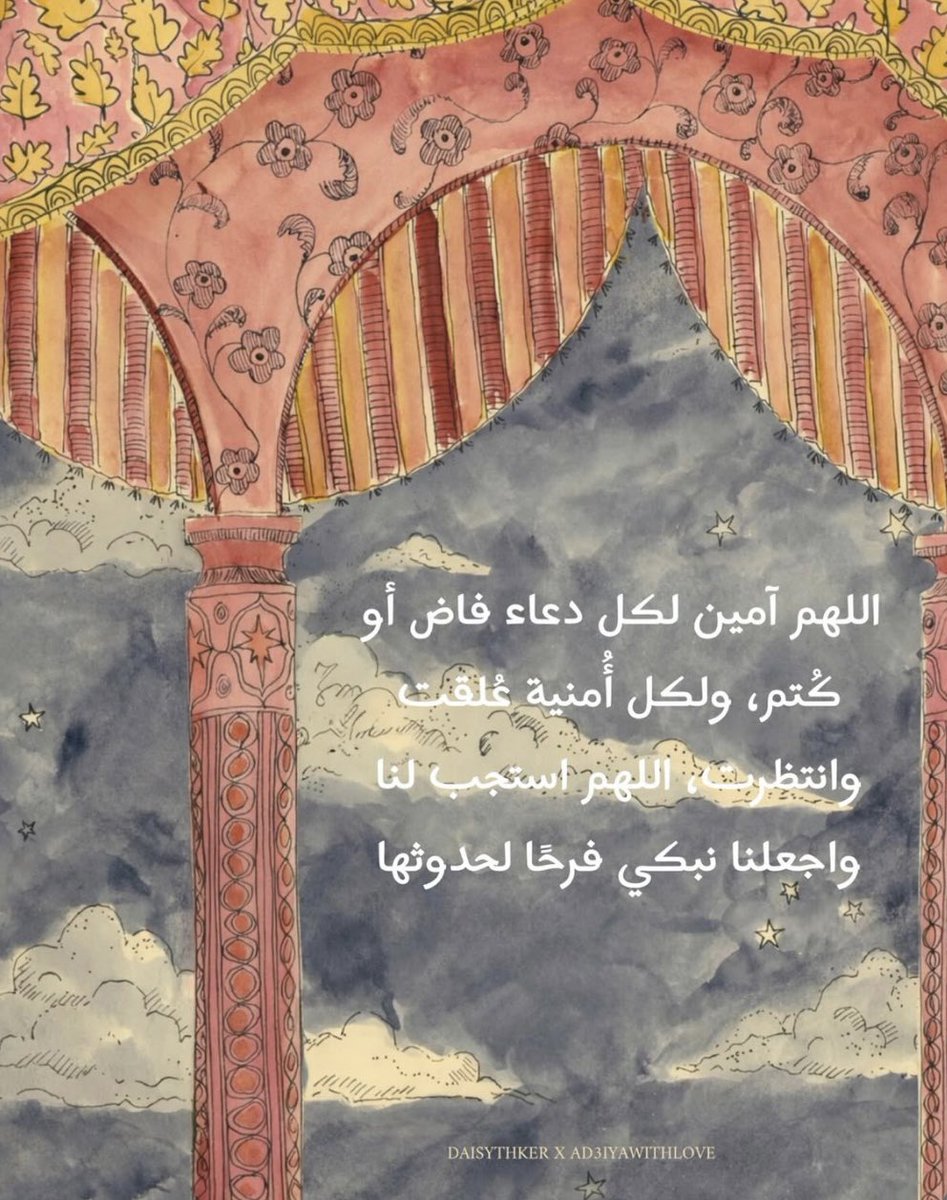 اللهم آمين لكل دعاء فاض أو
كُتم، ولكل أُمنية عُلقت
وانتظرت، اللهم استجب لنا
واجعلنا نبكي فرحًا لحدوثها
DAISYTHKER X AD3IYAWITHLOVE